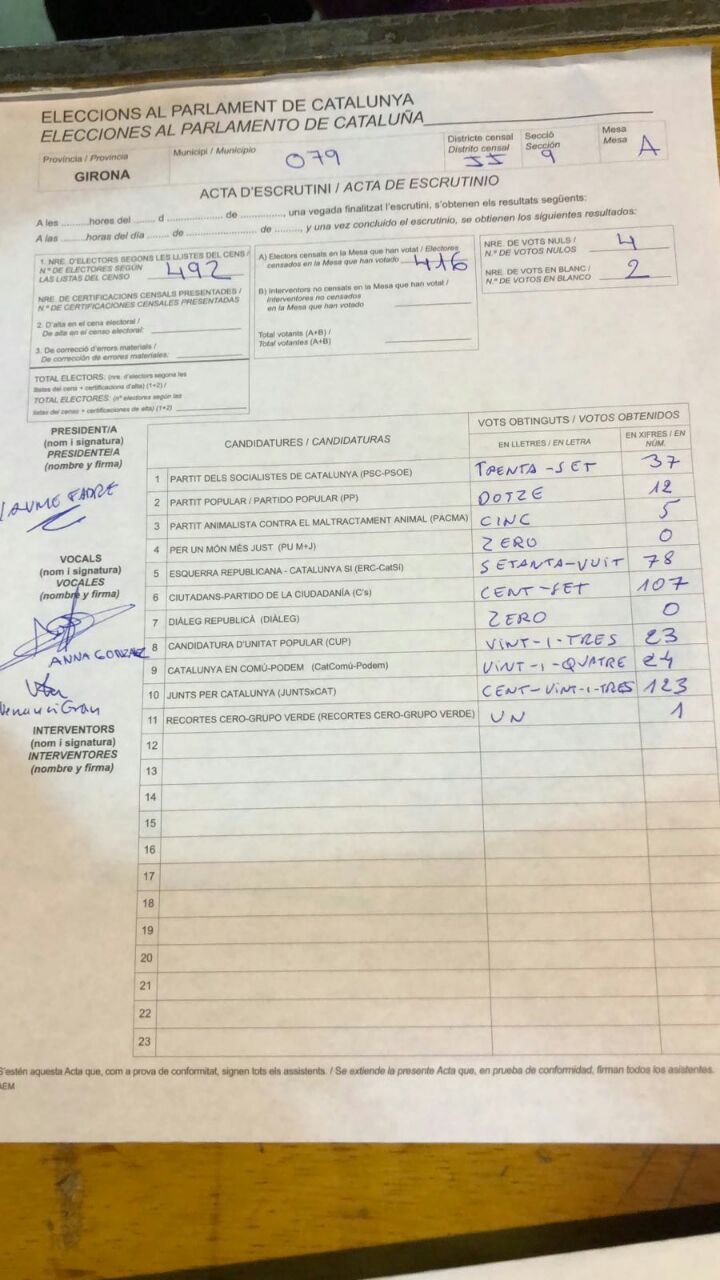 ELECCIONS AL PARLAMENT DE CATALUNYA
ELECCIONES AL PARLAMENTO DE CATALUÑA
Província / Provincia
GIRONA
Municipi / Municipio
079
Districte censal
Distrito censal
JJ
Secció
Sección
9
Mesa
Mesa
A
ACTA D'ESCRUTINI / ACTA DE ESCRUTINIO
A les ..........hores del ........ d .................... de ..............., una vegada finalitzat l'escrutini, s'obtenen els resultats següents:
A las ..........horas del día ........ de .................... de ........., y una vez concluido el escrutinio, se obtienen los siguientes resultados:
1. NRE. D'ELECTORS SEGONS LES LLISTES DEL CENS /
N.º DE ELECTORES SEGÚN
LAS LISTAS DEL CENSO
492
NRE. DE CERTIFICACIONS CENSALS PRESENTADES /
N.º DE CERTIFICACIONES CENSALES PRESENTADAS
2. D'alta en el cens electoral /
De alta en el censo electoral:
3. De correcció d'errors materials /
De corrección de errores materiales:
TOTAL ELECTORS: (nre. d'electors segons les
llistes del cens + certificacions d'alta) (1+2) /
TOTAL ELECTORES: (nº electores según las
listas del censo + certificaciones de alta) (1+2)
A) Electors censats en la Mesa que han votat / Electores
censados en la Mesa que han votado
416
B) Interventors no censats en la Mesa que han votat /
Interventores no censados
en la Mesa que han votado
Total votants (A+B) /
Total votantes (A+B)
NRE. DE VOTS NULS /
N.º DE VOTOS NULOS
4
NRE. DE VOTS EN BLANC /
N.º DE VOTOS EN BLANCO
2
PRESIDENT/A
(nom i signatura)
PRESIDENTE/A
(nombre y firma)
JAUME FADRE
VOCALS
(nom i signatura)
VOCALES
(nombre y firma)
ANNA GONZALEZ
INTERVENTORS
(nom i signatura)
INTERVENTORES
(nombre y firma)
CANDIDATURES / CANDIDATURAS
VOTS OBTINGUTS / VOTOS OBTENIDOS
EN LLETRES / EN LETRA
EN XIFRES / EN NÚM.
1 PARTIT DELS SOCIALISTES DE CATALUNYA (PSC-PSOE) TRENTA-SET 37
2 PARTIT POPULAR / PARTIDO POPULAR (PP) DOTZE 12
3 PARTIT ANIMALISTA CONTRA EL MALTRACTAMENT ANIMAL (PACMA) CINC 5
4 PER UN MÓN MÉS JUST (PU M+J) ZERO 0
5 ESQUERRA REPUBLICANA - CATALUNYA SÍ (ERC-CatSí) SETANTA-VUIT 78
6 CIUTADANS-PARTIDO DE LA CIUDADANÍA (C's) CENT-SET 107
7 DIÀLEG REPUBLICÀ (DIÀLEG) ZERO 0
8 CANDIDATURA D'UNITAT POPULAR (CUP) VINT-I-TRES 23
9 CATALUNYA EN COMÚ-PODEM (CatComú-Podem) VINT-I-QUATRE 24
10 JUNTS PER CATALUNYA (JUNTSxCAT) CENT-VINT-I-TRES 123
11 RECORTES CERO-GRUPO VERDE (RECORTES CERO-GRUPO VERDE) UN 1
12
13
14
15
16
17
18
19
20
21
22
23
S'estén aquesta Acta que, com a prova de conformitat, signen tots els assistents. / Se extiende la presente Acta que, en prueba de conformidad, firman todos los asistentes.